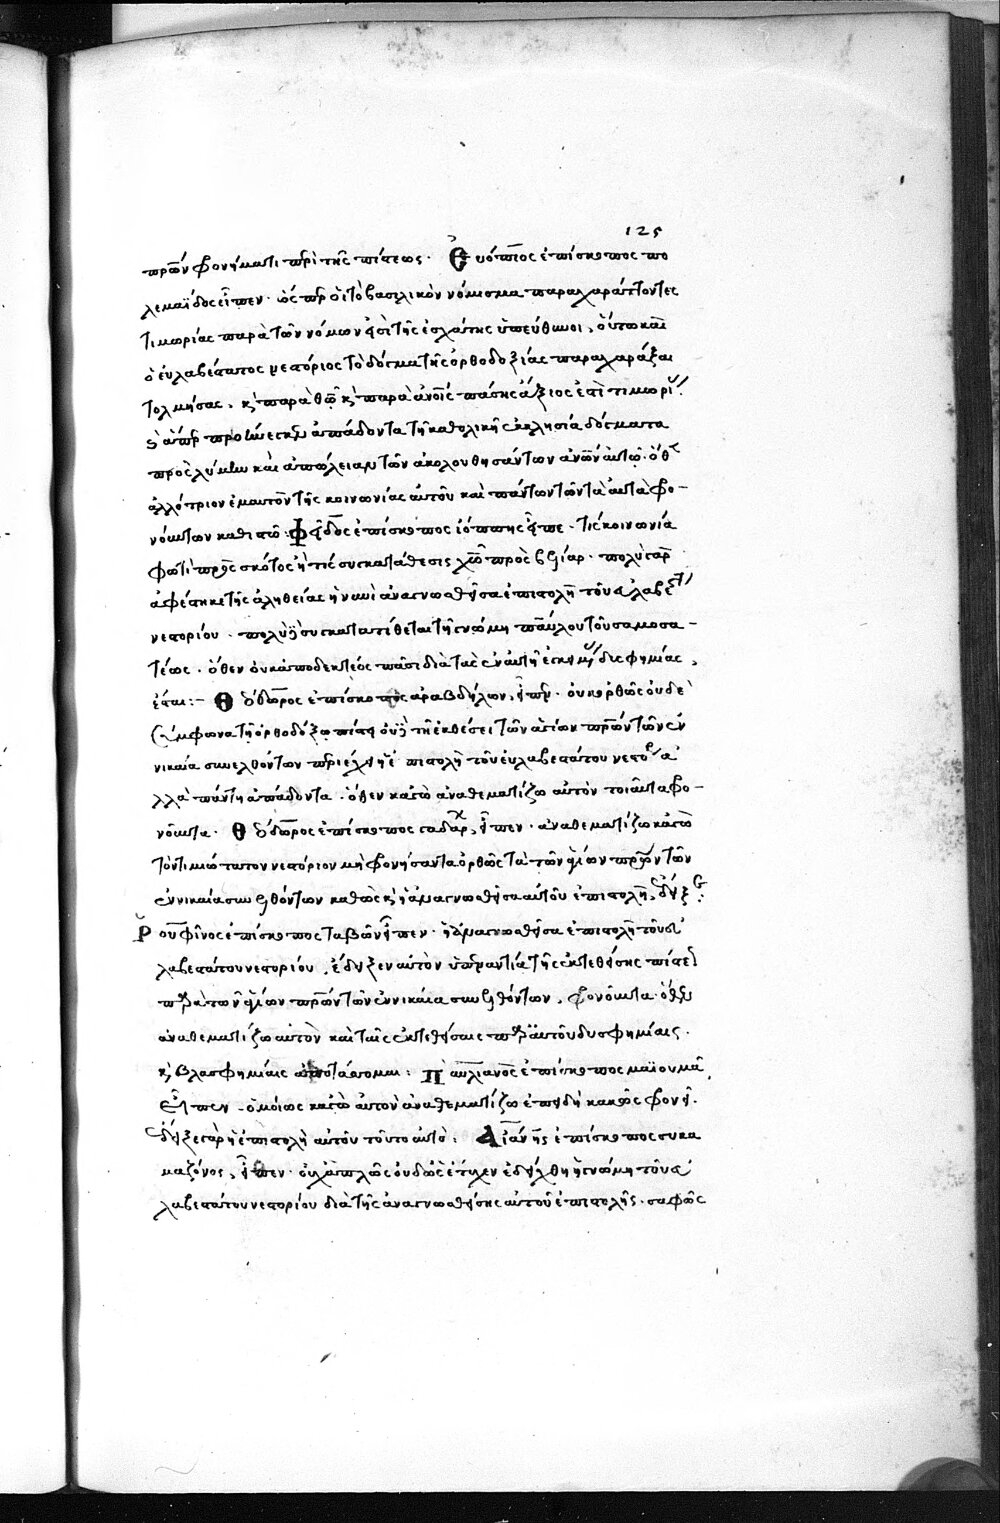 125
πρων φρονήμασι περὶ τῆς πίστεως. Εὐόπτιος ἐπίσκοπος πτο
λεμαΐδος εἶπεν. ὥσπερ οἱ τὸ βασιλικὸν νόμισμα παραχαράττοντες
τιμωρίας παρὰ τῶν νόμων εἰσὶ τῆς ἐσχάτης ὑπεύθυνοι, οὕτω καὶ
ὁ εὐλαβέστατος νεστόριος τὸ δόγμα τῆς ὀρθοδοξίας παραχαράξαι
τολμήσας, κ παρὰ θω κ παρὰ ανοις πάσης ἄξιός ἐστι τιμωρι
ἀπάδοντα τῇ καθολικῇ ἐκκλησία δόγματα
πρὸς λύμην καὶ ἀπώλειαν τῶν ἀκολουθησάντων ανων αὐτῶ. ὅθ
ἀλλότριον ἐμαυτὸν τῆς κοινωνίας αὐτοῦ καὶ πάντων τῶν τὰ αὐτὰ φρο-
νούντων καθιστῶ. Φεῖδος ἐπίσκοπος ἰόππης εἶπε. τίς κοινωνία
φωτὶ πρὸς σκότος ἢ τίς συγκατάθεσις χω πρὸς βελίαρ. πολὺ γὰρ
ἀφέστηκε τῆς ἀληθείας ἡ νυνὶ ἀναγνωσθεῖσα ἐπιστολὴ τοῦ εὐλαβεστ
νεστορίου. πολὺ συγκατατίθεται τῇ γνώμῃ παύλου τοῦ σαμοσα-
τέως. ὅθεν οὐκ ἀποδεκτέος πᾶσι διὰ τὰς ἐν αὐτῇ δυσφημίας,
ἐστι:- Θεόδωρος ἐπίσκοπος ἀραβδήλων, εἶπεν. οὐκ ὀρθῶς οὐδὲ
σύμφωνα τῇ ὀρθοδόξω πίστει τῇ ἐκθέσει τῶν ἁγίων πρων τῶν ἐν
νικαία συνελθόντων περιέχει ἡ ἐπιστολὴ τοῦ εὐλαβεστάτου νεστο ἀ
λλὰ πάντη ἀπάδοντα. ὅθεν κἀγὼ ἀναθεματίζω αὐτὸν τοιαῦτα φρο-
νοῦντα. Θεόδωρος ἐπίσκοπος γαδάρ, εἶπεν. ἀναθεματίζω κἀγὼ
τὸν τιμιώτατον νεστόριον μὴ φρονήσαντα ὀρθῶς τὰ τῶν ἁγίων πρων τῶν
ἐν νικαία συνελθόντων καθὼς κ ἡ ἀναγνωσθεῖσα αὐτοῦ ἐπιστολὴ, ἔδειξ
Ρουφῖνος ἐπίσκοπος ταβῶν εἶπεν. ἡ ἀναγνωσθεῖσα ἐπιστολὴ τοῦ εὐ
λαβεστάτου νεστορίου, ἔδειξεν αὐτὸν ὑπεναντία τῆς ἐκτεθείσης πίστε
παρὰ τῶν ἁγίων πρων τῶν ἐν νικαία συνελθόντων, φρονοῦντα. ὅθεν
ἀναθεματίζω αὐτὸν καὶ ταῖς ἐκτεθείσαις παρ αὐτοῦ δυσφημίαις.
κ βλασφημίαις ἀποτάττομαι: Παυλιανὸς ἐπίσκοπος μαϊουμα,
εἶπεν. ὁμοίως κἀγὼ αὐτὸν ἀναθεματίζω ἐπειδὴ κακῶς φρονεῖ.
ἔδειξε γὰρ ἡ ἐπιστολὴ αὐτοῦ τοῦτο αὐτό: Αἰάνης ἐπίσκοπος συκα
μαζόνος, εἶπεν. οὐχ ἁπλῶς οὐδ' ὡς ἔτυχεν ἐδείχθη ἡ γνώμη τοῦ εὐ
λαβεστάτου νεστορίου διὰ τῆς ἀναγνωσθείσης αὐτοῦ ἐπιστολῆς. σαφῶς